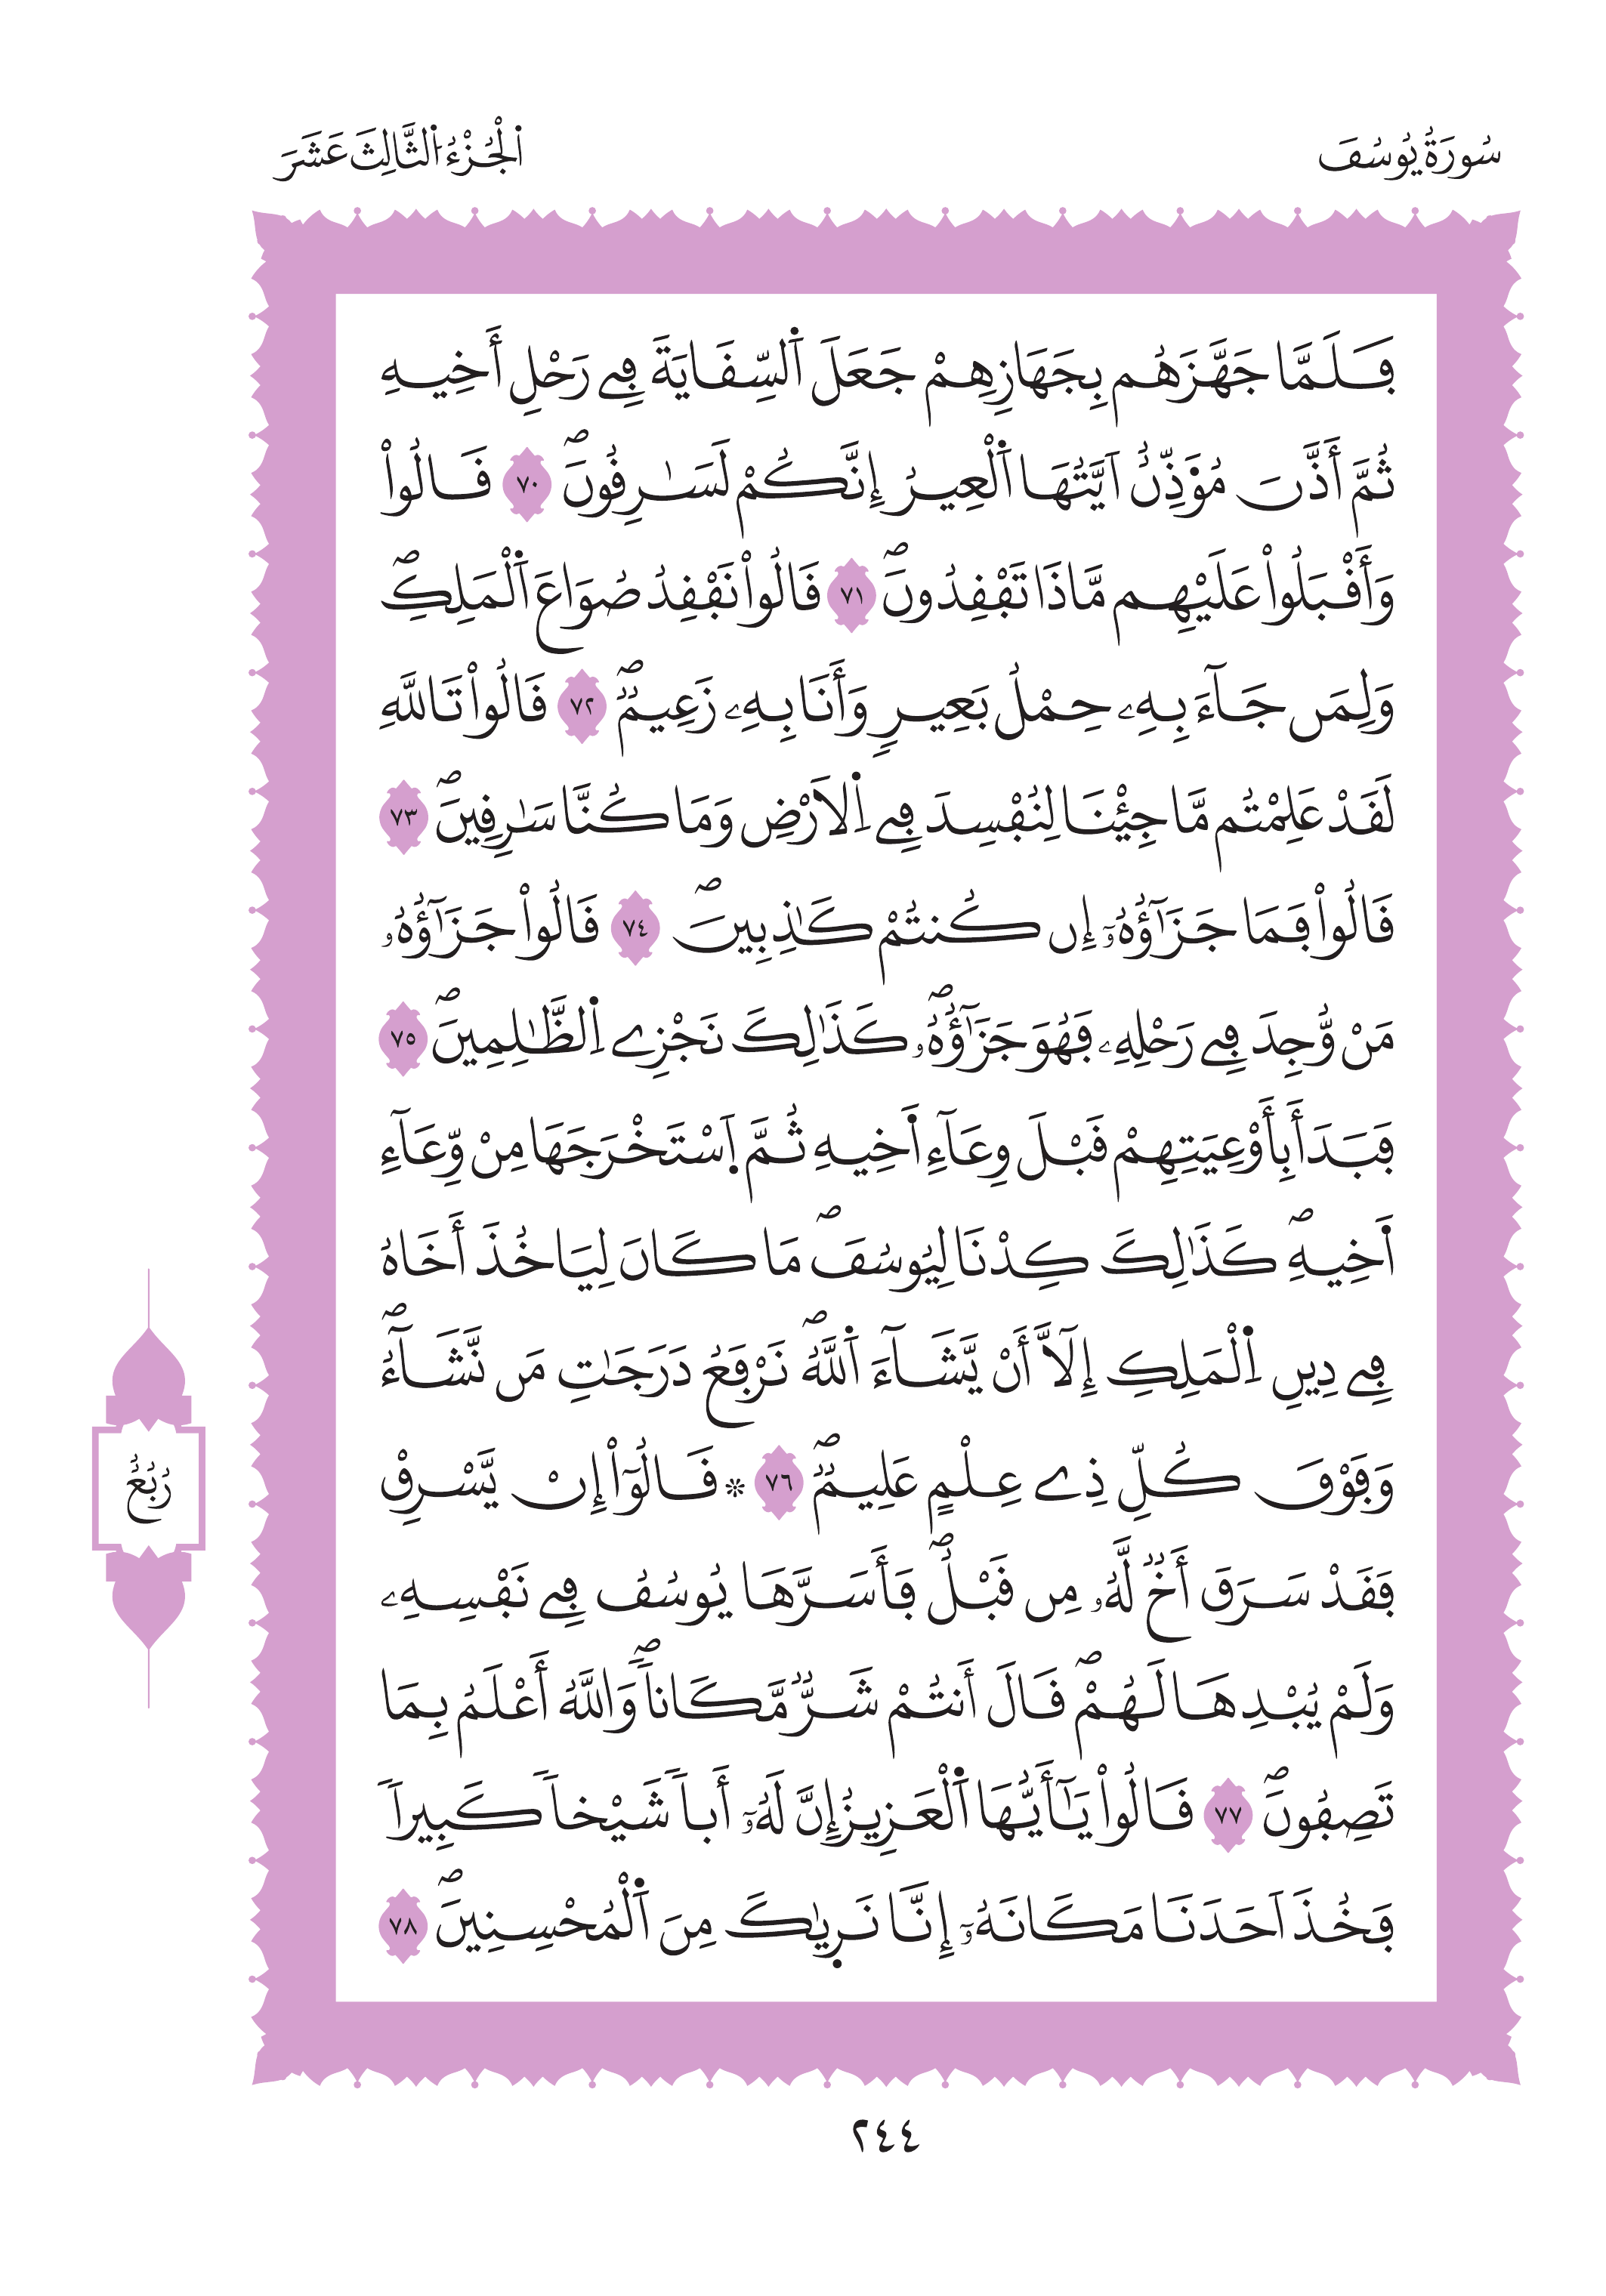 سُورَةُ يُوسُفَ
اَ۬لْجُزْءُ اُ۬لثَّالِثَ عَشَرَ
فَلَمَّا جَهَّزَهُم بِجَهَازِهِمْ جَعَلَ اَ۬لسِّقَايَةَ فِے رَحْلِ أَخِيهِ
ثُمَّ أَذَّنَ مُؤَذِّنٌ اَيَّتُهَا اَ۬لْعِيرُ إِنَّكُمْ لَسَٰرِقُونَۖ ٧٠ قَالُواْ
وَأَقْبَلُواْ عَلَيْهِم مَّاذَا تَفْقِدُونَۖ ٧١ قَالُواْ نَفْقِدُ صُوَاعَ اَ۬لْمَلِكِۖ
وَلِمَن جَآءَ بِهِۦ حِمْلُ بَعِيرٖ وَأَنَا بِهِۦ زَعِيمٞۖ ٧٢ قَالُواْ تَاللَّهِ
لَقَدْ عَلِمْتُم مَّا جِئْنَا لِنُفْسِدَ فِے اِ۬لَارْضِ وَمَا كُنَّا سَٰرِقِينَۖ ٧٣
قَالُواْ فَمَا جَزَٰٓؤُهُۥٓ إِن كُنتُمْ كَٰذِبِينَۖ ٧٤ قَالُواْ جَزَٰٓؤُهُۥ
مَنْ وُّجِدَ فِے رَحْلِهِۦ فَهُوَ جَزَٰٓؤُهُۥۖ كَذَٰلِكَ نَجْزِے اِ۬لظَّٰلِمِينَۖ ٧٥
فَبَدَأَ بِأَوْعِيَتِهِمْ قَبْلَ وِعَآءِ اَ۬خِيهِ ثُمَّ اَ۪سْتَخْرَجَهَا مِنْ وِّعَآءِ
اَ۬خِيهِۖ كَذَٰلِكَ كِدْنَا لِيُوسُفَۖ مَا كَانَ لِيَاخُذَ أَخَاهُ
فِے دِينِ اِ۬لْمَلِكِ إِلَّآ أَنْ يَّشَآءَ اَ۬للَّهُۖ نَرْفَعُ دَرَجَٰتِ مَن نَّشَآءُۖ
وَفَوْقَ كُلِّ ذِے عِلْمٍ عَلِيمٞۖ ٧٦ * قَالُوٓاْ إِنْ يَّسْرِقْ
فَقَدْ سَرَقَ أَخٞ لَّهُۥ مِن قَبْلُۖ فَأَسَرَّهَا يُوسُفُ فِے نَفْسِهِۦ
وَلَمْ يُبْدِهَا لَهُمْۖ قَالَ أَنتُمْ شَرّٞ مَّكَاناٗۖ وَاللَّهُ أَعْلَمُ بِمَا
تَصِفُونَۖ ٧٧ قَالُواْ يَٰٓأَيُّهَا اَ۬لْعَزِيزُ إِنَّ لَهُۥٓ أَباٗ شَيْخاٗ كَبِيراٗ
فَخُذَ اَحَدَنَا مَكَانَهُۥٓ إِنَّا نَر۪يٰكَ مِنَ اَ۬لْمُحْسِنِينَۖ ٧٨
رُبُعُ
٢٤٤